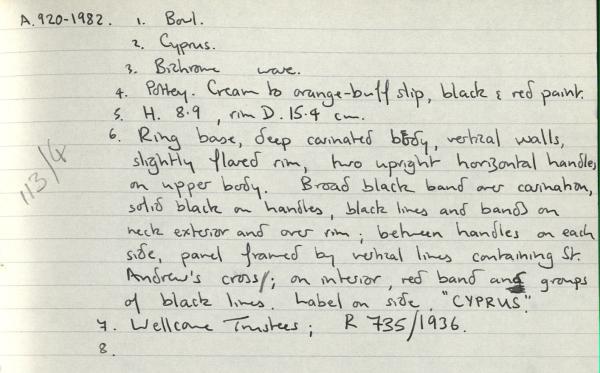 A.920-1982. 1. Bowl.
2. Cyprus.
3. Bichrome ware.
4. Pottery. Cream to orange-buff slip, black & red paint.
5. H. 8.9, rim D. 15.4 cm.
6. Ring base, deep carinated body, vertical walls,
slightly flared rim, two upright horizontal handles
on upper body. Broad black band over carination,
solid black on handles, black lines and bands on
neck exterior and over rim; between handles on each
side, panel framed by vertical lines containing St.
Andrew's cross; on interior, red band and groups
of black lines. Label on side, "CYPRUS".
7. Wellcome Trustees; R 735/1936.
8.
113/4